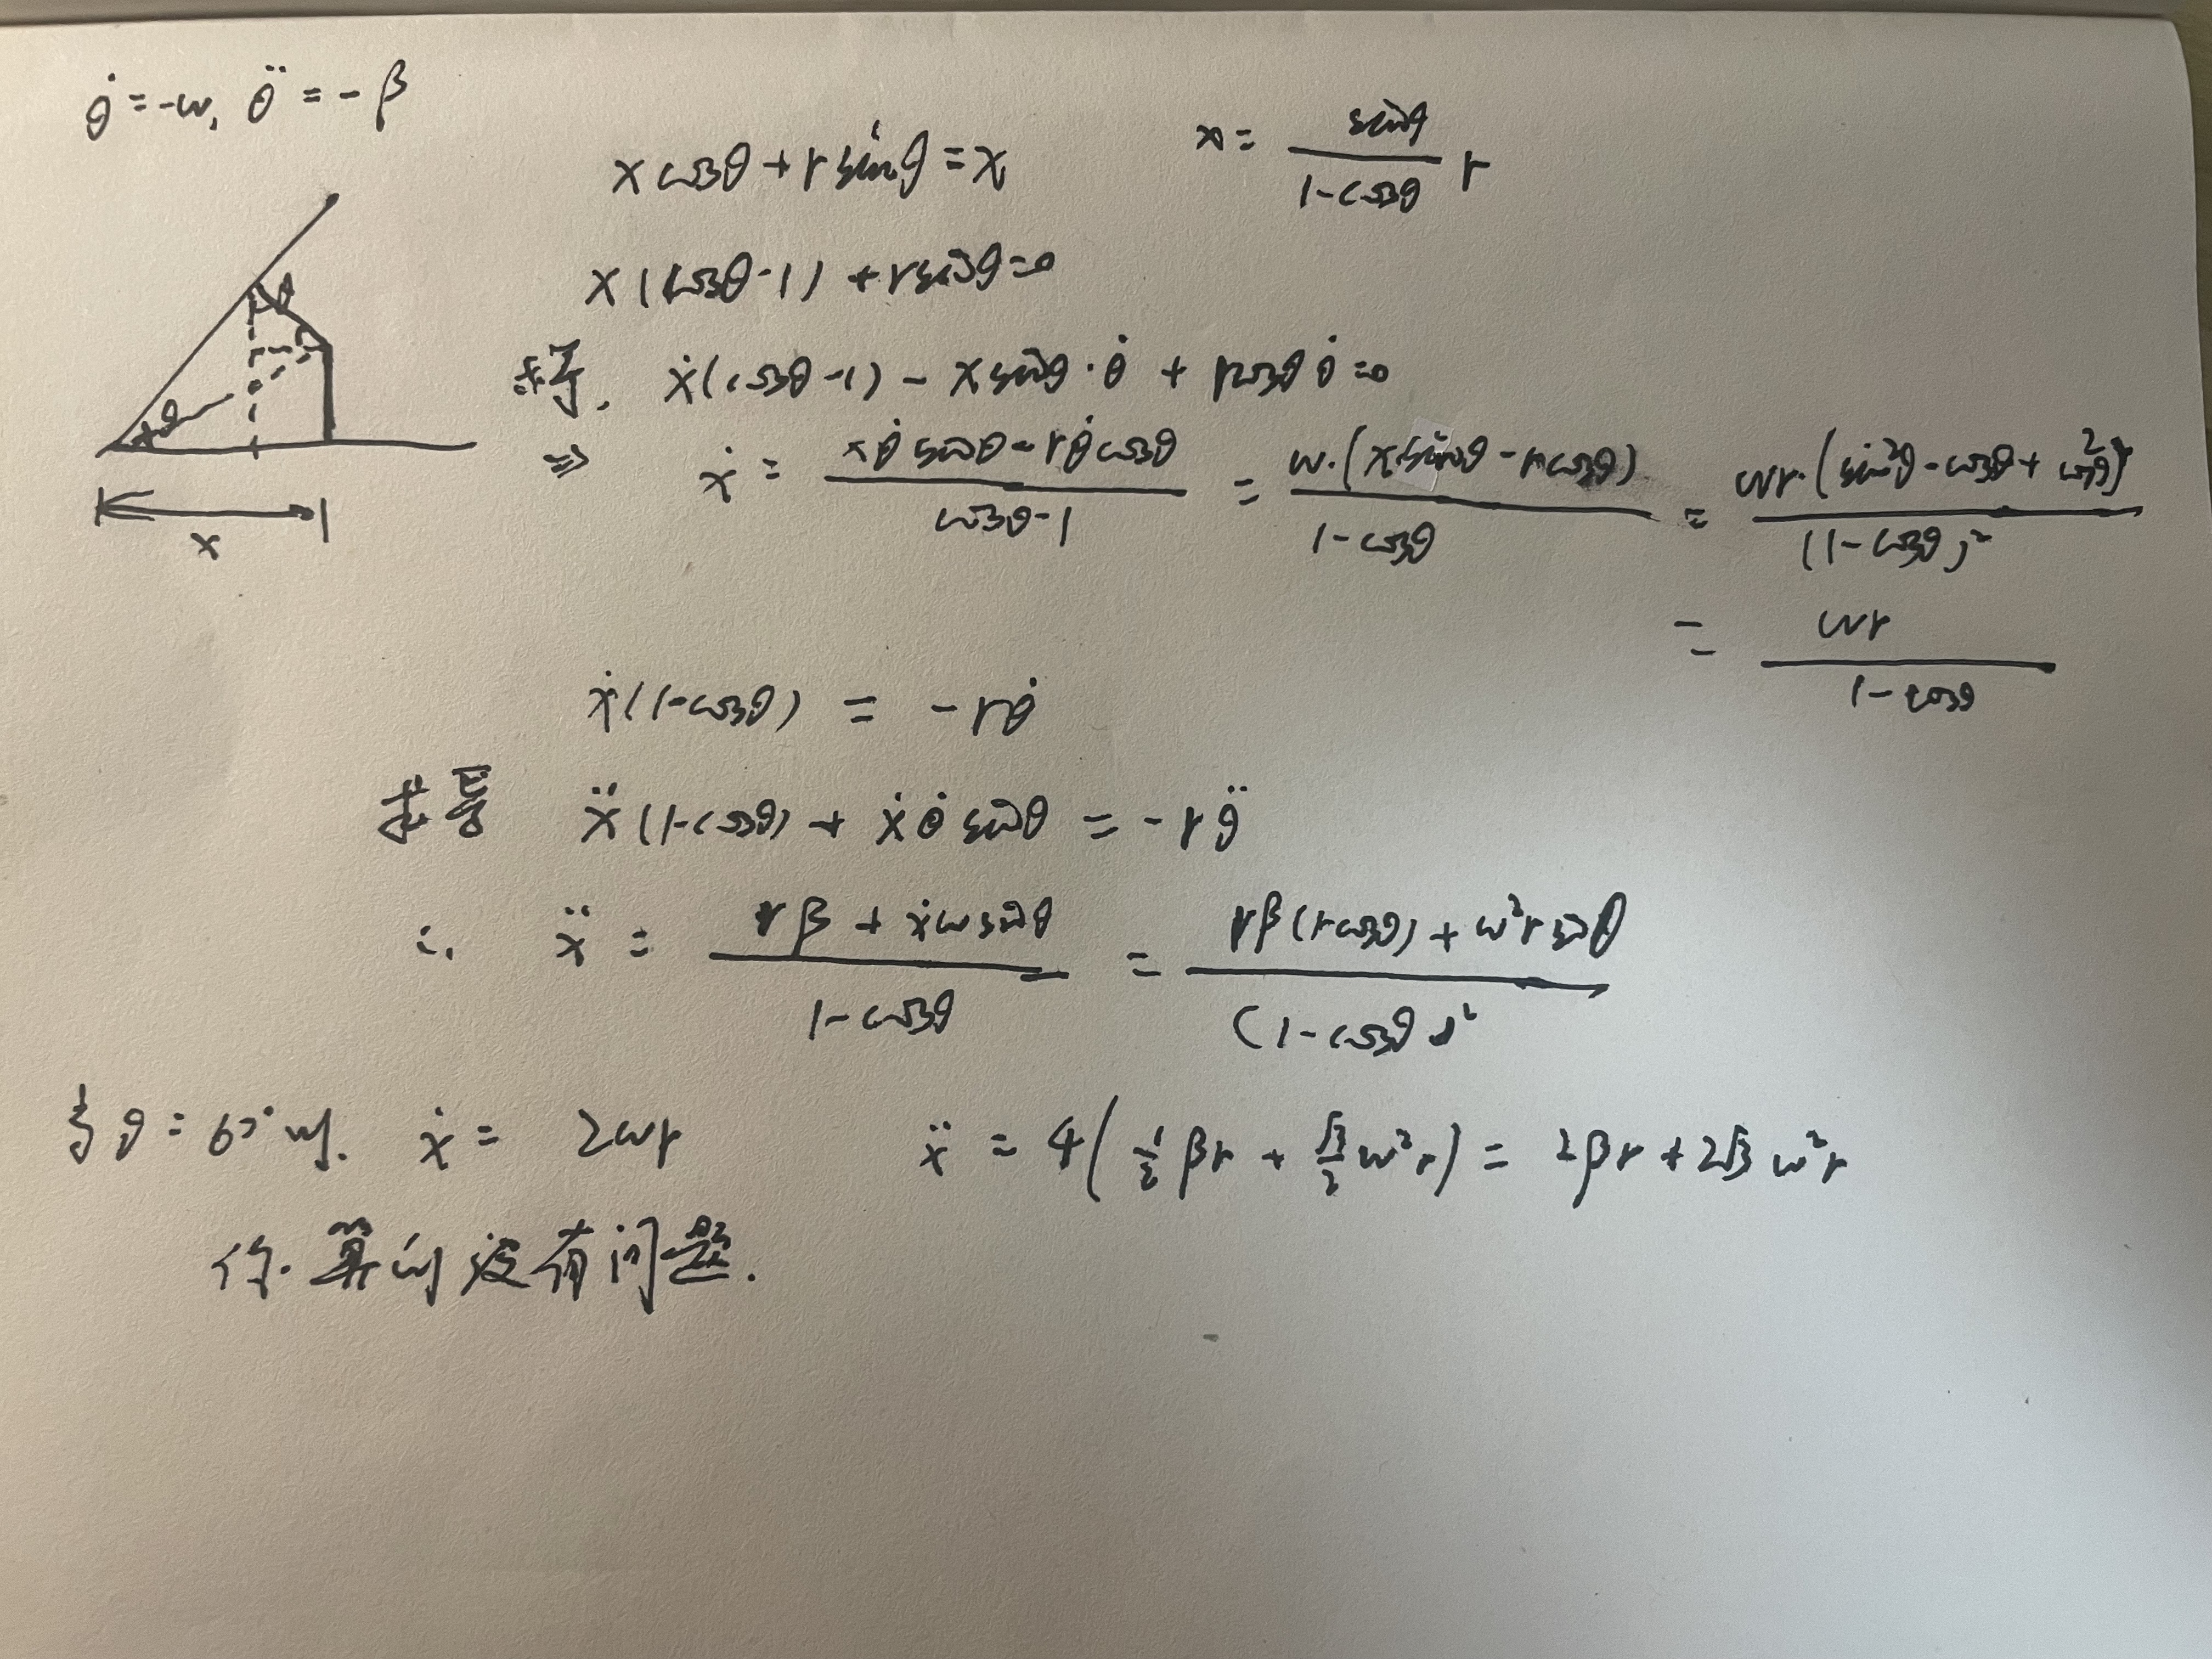 θ̇ = -ω, θ̈ = -β
x cosθ + r sinθ = x    x = sinθ / (1-cosθ) r
x(cosθ-1) + r sinθ = 0
求导. ẋ(cosθ-1) - x sinθ·θ̇ + r cosθ θ̇ = 0
⇒ ẋ = (xθ̇ sinθ - rθ̇ cosθ) / (cosθ-1) = ω·(x sinθ - r cosθ) / (1-cosθ) = ωr·(sin²θ - cosθ + cos²θ) / (1-cosθ)²
= ωr / (1-cosθ)
θ
θ
x
ẋ(1-cosθ) = -rθ̇
求导 ẍ(1-cosθ) + ẋθ̇ sinθ = -rθ̈
∴ ẍ = (rβ + ẋω sinθ) / (1-cosθ) = (rβ(1-cosθ) + ω²r sinθ) / (1-cosθ)²
当θ = 60°时. ẋ = 2ωr    ẍ = 4(1/2 βr + √3/2 ω²r) = 2βr + 2√3 ω²r
你算的没有问题.